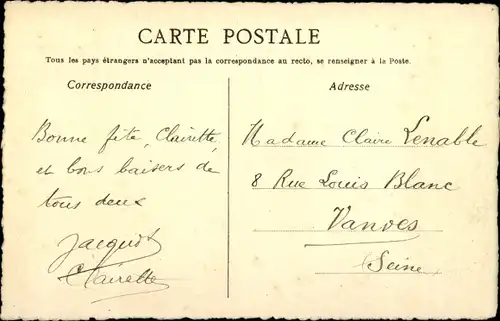 CARTE POSTALE
Tous les pays étrangers n'acceptant pas la correspondance au recto, se renseigner à la Poste.
Correspondance
Adresse
Bonne fête, Clairette,
et bons baisers de
tous deux
Jacquot
Clairette
Madame Claire Lenable
8 Rue Louis Blanc
Vanves
Seine